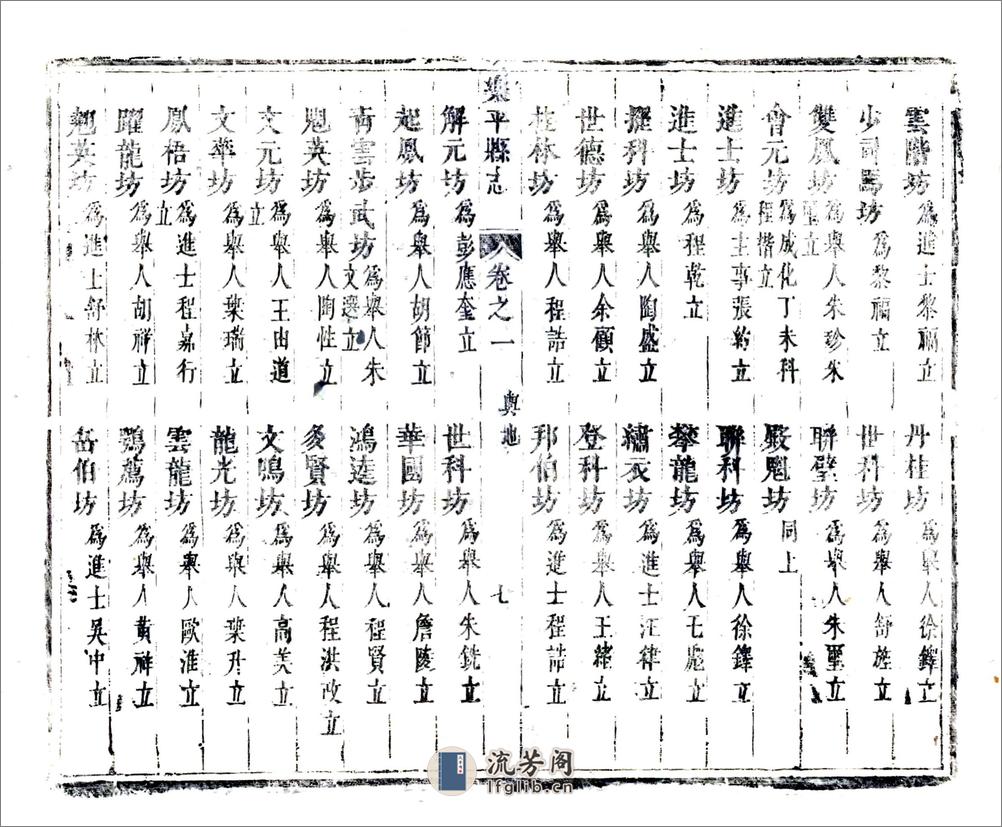 雲階坊 為進士黎福立
丹桂坊 為舉人徐鐸立
少司馬坊 為黎福立
世科坊 為舉人舒旌立
雙鳳坊 為舉人朱珍朱璽立
聯璧坊 為舉人朱璽立
會元坊 為成化丁未科程楷立
殿魁坊 同上
進士坊 為主事張約立
聯科坊 為舉人徐鐸立
進士坊 為程乾立
攀龍坊 為舉人王彪立
擢科坊 為舉人陶盛立
繡衣坊 為進士汪律立
世德坊 為舉人余頤立
登科坊 為舉人王緒立
桂林坊 為舉人程誥立
邦伯坊 為進士程誥立
樂平縣志 卷之一 輿地 七
解元坊 為彭應奎立
世科坊 為舉人朱銑立
起鳳坊 為舉人胡節立
華國坊 為舉人詹陵立
青雲步武坊 為舉人朱文選立
鴻逵坊 為舉人程賢立
魁英坊 為舉人陶性立
象賢坊 為舉人程洪改立
文元坊 為舉人王由道立
文鳴坊 為舉人高美立
文華坊 為舉人葉瑞立
龍光坊 為舉人葉升立
鳳梧坊 為進士程嘉行立
雲龍坊 為舉人歐淮立
躍龍坊 為舉人胡祥立
鶚薦坊 為舉人黃祥立
翹英坊 為進士舒林立
岳伯坊 為進士吳中立
流芳阁
lfglib.cn